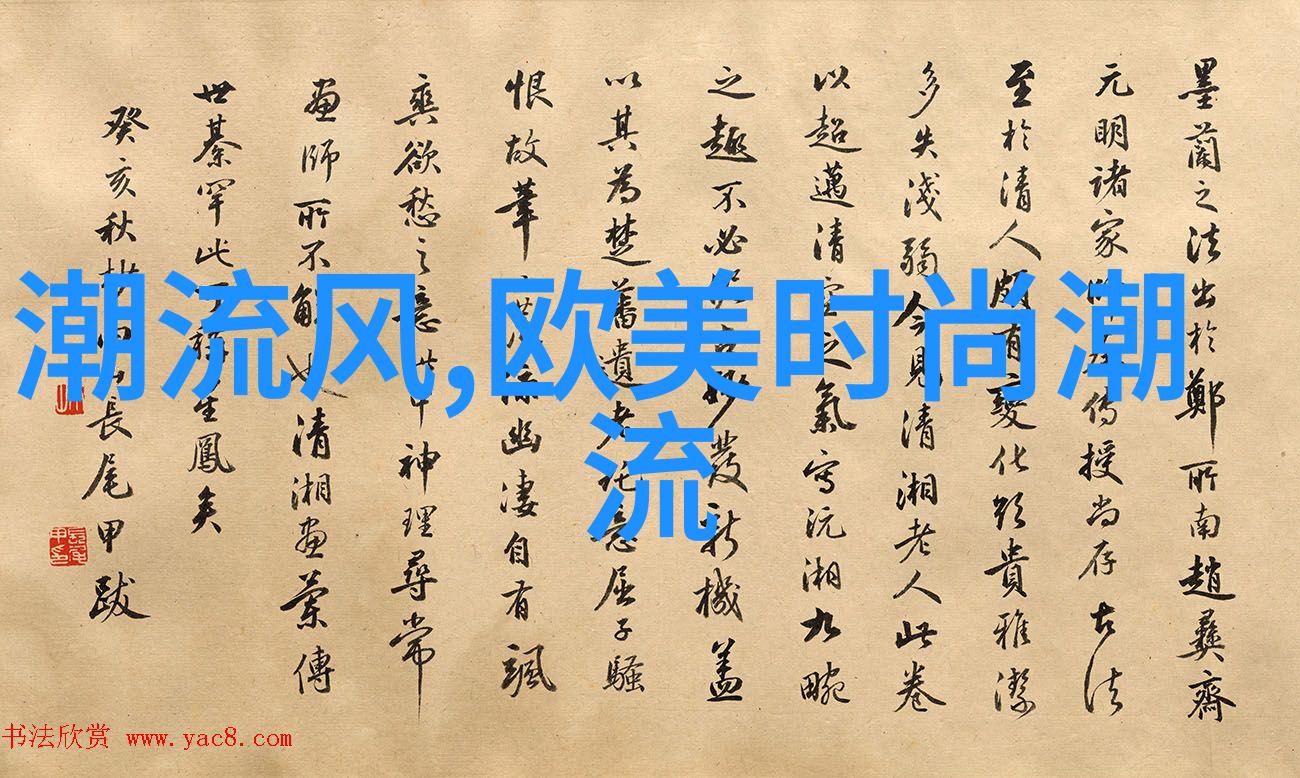 墨蘭之法出於鄭所南趙彝齋
元明諸家
傳授尚存古法
至於清人頗有變化
貴雅潔
多失淺弱今見清湘老人此卷
以超邁清空之氣寫沅湘九畹
之趣不必
發新機蓋
以其為楚舊遺老託意屈子騷
恨故筆
幽淒自有
飄
興欲愁之意
神理尋常
畫師所不
清湘畫蘭傳
世綦罕此
鳳矣
癸亥秋
長尾甲跋
潮流风,欧美时尚潮
流
书法欣赏 www.yac8.com